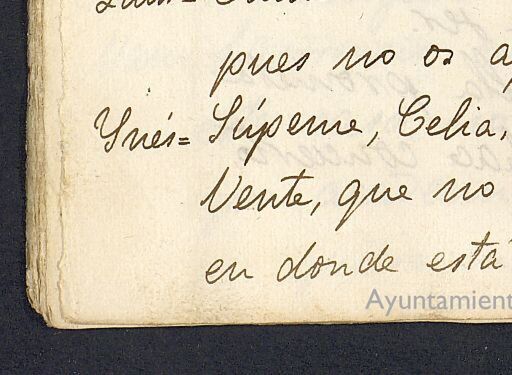 pues no os
Ynés= Súpeme, Celia,
Vente, que no
en donde está
Ayuntamient